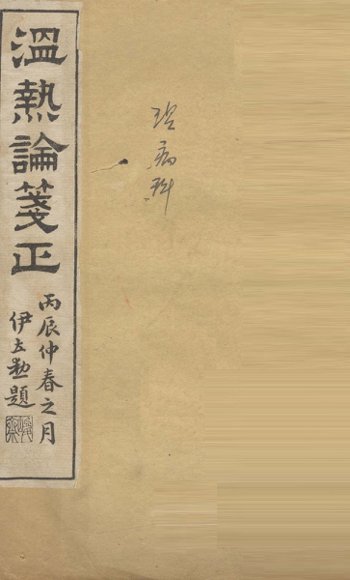 溫熱論箋正
丙辰仲春之月
伊立勳題
病科